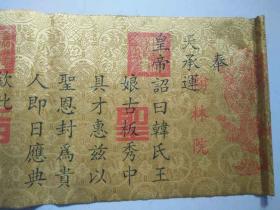 奉
天承運
皇帝詔曰韓氏王
娘古板秀中
具才惠茲以
聖恩封為貴
人即日應典
欽此
翰林院
聖